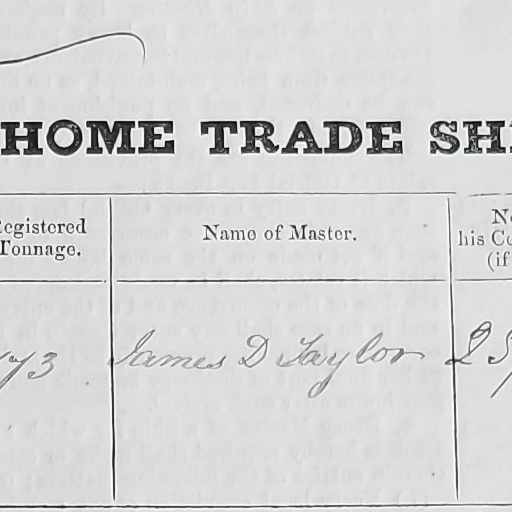 HOME TRADE SH
Registered Tonnage.
Name of Master.
his
(if
73 James D Taylor 2